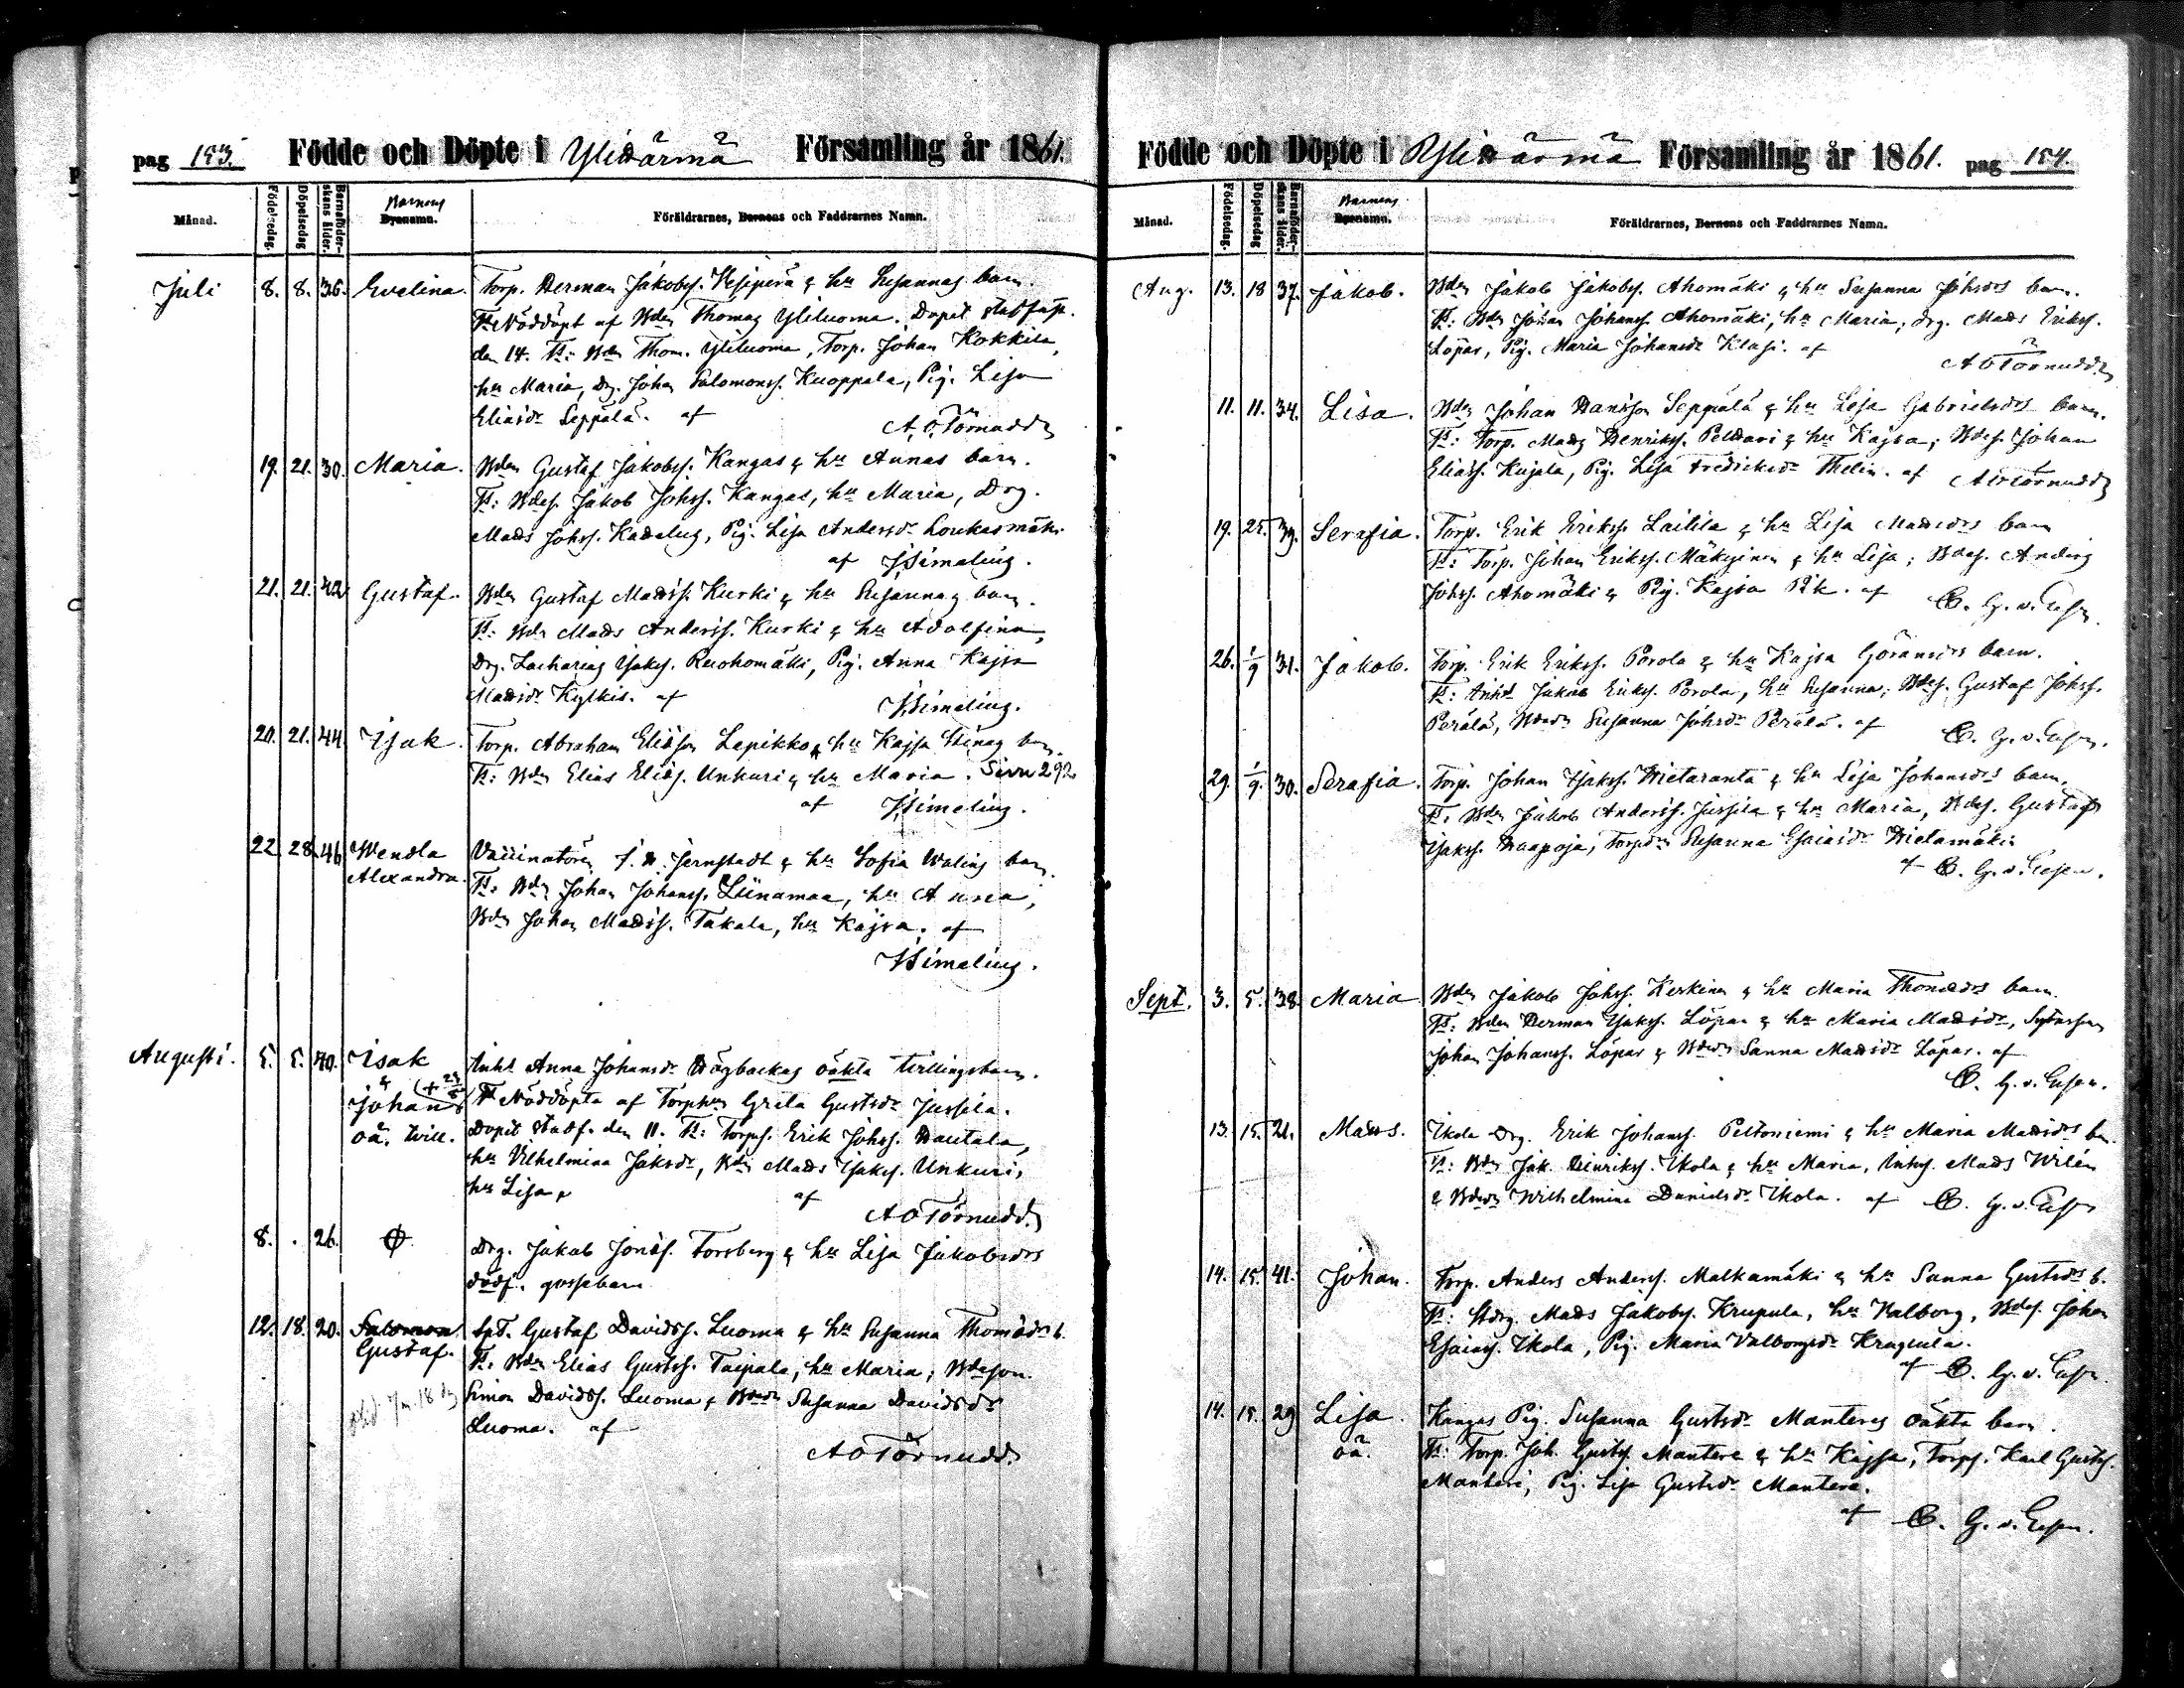 pag 153.
Födde och Döpte i Ylihärmä Församling år 1861.
Månad.
Födelsedag.
Döpelsedag
Barnaföderskans ålder.
Barnens
Byanamn.
Föräldrarnes, Barnens och Faddrarnes Namn.
Juli 8. 8. 36. Evelina. Torp. Herman Jakobss. Vesiperä & hu Susannas barn.
Nöddöpt af Bdn Thomas Yliluoma. Dopet stadfäst.
den 14. Ts: Bdn Thom. Yliluoma, Torp. Johan Kokkila,
hu Maria, Drg. Johan Salomonss. Kuoppala, Pig. Lisa
Eliasdr Seppälä. af
A. O. Törnudd
19. 21. 30. Maria. Bdn Gustaf Jakobss. Kangas & hu Annas barn.
Ts: Bdes. Jakob Johss. Kangas, hu Maria, Drg.
Mads Johss. Kadelus, Pig. Lisa Andersdr Loukasmäki
af JHimeling.
21. 21. 42. Gustaf. Bdn Gustaf Madss. Kurki & hu Susannas barn.
Ts: Bdn Mads Anderss. Kurki & hu Adolfina,
Drg. Zacharias Isaks. Ruohomäki, Pig. Anna Kajsa
Madsdr Kylkis. af JHimeling.
20. 21. 44. Isak. Torp. Abraham Eliasson Lapikko & hu Kajsa Stinas barn.
Ts: Bdn Elias Eliass. Unkuri & hu Maria. Sivu 292
af JHimeling.
22. 28. 46. Wendla Vaccinatören J. H. Jernstedt & hu Sofia Walins barn.
Alexandra. Ts: Bdn Johan Johanss. Liinamaa, hu Anna,
Bdn Johan Madss. Takala, hu Kajsa. af
JHimeling.
Augusti. 5. 5. 40. Isak Inhs Anna Johansdr Högbackas oäkta tvillingsbarn.
& Johan Nöddöpta af Torphu Greta Gustsdr Jussila.
oä. tvill. Dopet stadf. den 11. Ts: Torps. Erik Johss. Hautala,
hu Vilhelmina Jaksdr, Bdn Mads Isaks. Unkuri,
hu Lisa, af
A O Törnudd.
8. . 26. Drg. Jakob Jonass. Forsberg & hu Lisa Jakobsdrs
dödf. gossebarn
12. 18. 20. Salomon Spt. Gustaf Davidss. Luoma & hu Susanna Thomasdrs b.
Gustaf. Ts: Bdn Elias Gustss. Taipale, hu Maria; Bdeson
Simon Davidss. Luoma & Bdedr Susanna Davidsdr
Luoma. af
A O Törnudd.
Födde och Döpte i Ylihärmä Församling år 1861. pag 154.
Månad.
Födelsedag.
Döpelsedag
Barnaföderskans ålder.
Barnens
Byanamn.
Föräldrarnes, Barnens och Faddrarnes Namn.
Aug. 13. 18 37. Jakob. Bdn Jakob Jakobss. Ahomäki & hu Susanna Johsdrs barn.
Ts: Bdn Johan Johanss. Ahomäki, hu Maria; drg. Mads Erikss.
Löpar, Pig. Maria Johansdr Klasi. af
A O Törnudd
11. 11. 34. Lisa. Bdn Johan Hansson Seppälä & hu Lisa Gabrielsdrs barn.
Ts: Torp. Mads Henrikss. Peldari & hu Kajsa; Bdes. Johan
Eliass. Kujala, Pig. Lisa Fredriksdr Thelin. af A O Törnudd
19. 25. 39. Serafia. Torp. Erik Erikss. Laitila & hu Lisa Madsdrs barn
Ts: Torp. Johan Erikss. Mäkynen & hu Lisa; Bdes. Anders
Johss. Ahomäki & Pig. Kajsa Pik. af C. G. v. Essen.
26. 1/9 31. Jakob. Torp. Erik Erikss. Porola & hu Kajsa Göransdrs barn.
Ts: Inhs Jakob Erikss. Porola, hu Susanna; Bdes. Gustaf Johss.
Perälä, Bdedr Susanna Johsdr Perälä. af C. G. v. Essen.
29. 1/9. 30. Serafia. Torp. Johan Isakss. Hietaranta & hu Lisa Johansdrs barn.
Ts: Bdn Jakob Anderss. Jussila & hu Maria, Bdes. Gustaf
Isakss. Haapoja, Torpdr Susanna Esaiasdr Hietamäki.
af C. G. v. Essen.
Sept. 3. 5. 38 Maria Bdn Jakob Johss. Keskinen & hu Maria Thomasdrs barn.
Ts: Bdn Herman Isakss. Löpar & hu Maria Madsdr,
Johan Johanss. Löpar & Bdedr Sanna Madsdr Löpar. af
C. G. v. Essen.
13. 15. 21. Mads. Ikola Drg. Erik Johanss. Peltoniemi & hu Maria Madsdrs bn.
Ts: Bdn Jak. Henrikss. Ikola & hu Maria, Inhs. Mads Wilén
& Bdedr Wilhelmina Danielsdr Ikola. af C. G. v. Essen
14. 15. 41. Johan. Torp. Anders Anderss. Malkamäki & hu Sanna Gustsdrs b.
Ts: Mads Jakobss. Krapula, hu Valborg, Bdes. Johan
Esaiass. Ikola, Pig. Maria Valborgsdr Krapula.
af C. G. v. Essen.
14. 15. 29 Lisa. Kangas Pig. Susanna Gustsdr Manteres oäkta barn.
oä. Ts: Torp. Joh. Gustss. Mantere & hu Kajsa, Torps. Karl Gustss.
Manteri, Pig. Lisa Gustsdr Mantere.
af C. G. v. Essen.